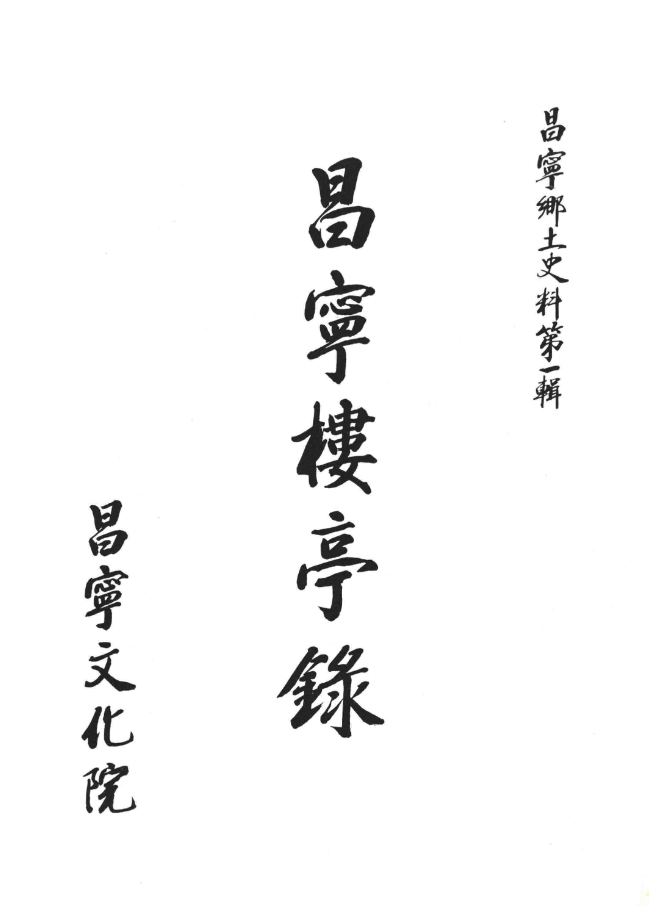 昌寧鄉土史料第一輯
昌寧樓亭錄
昌寧文化院